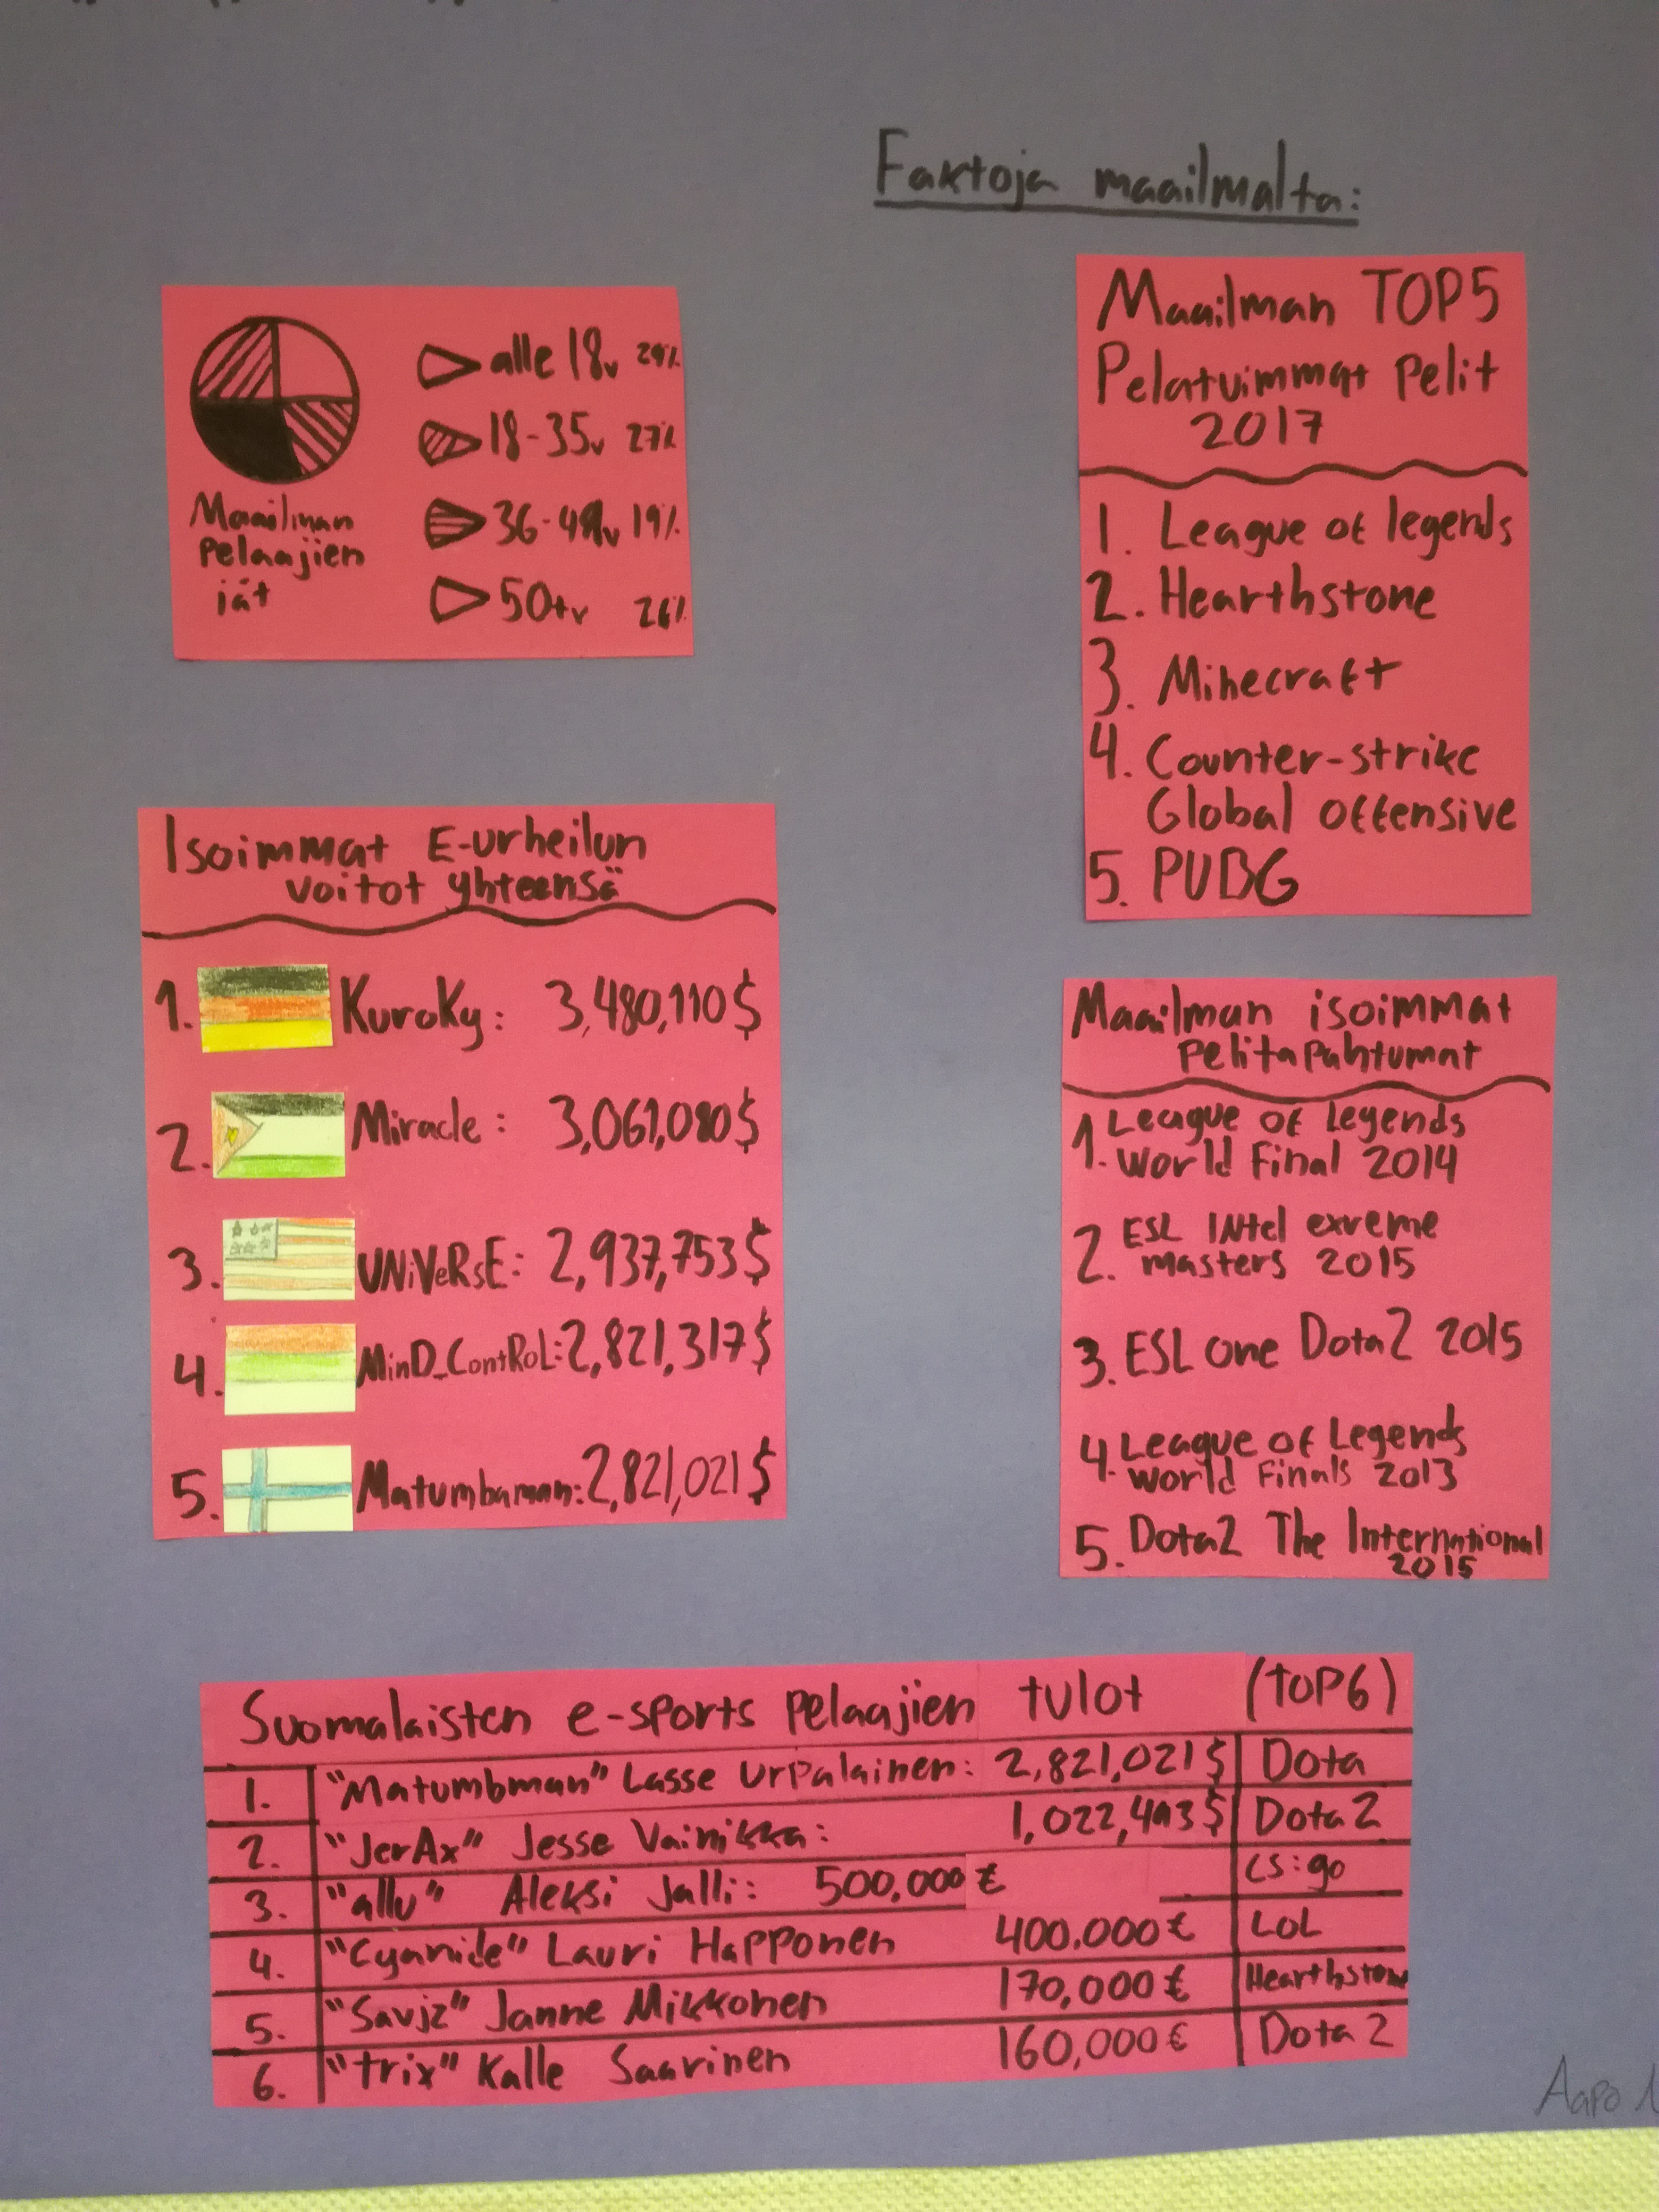 Faktoja maailmalta:
alle 18v
18-35v 27%
36-49v 19%
50+v 26%
Maailman
pelaajien
iät
Maailman TOP5
Pelatuimmat pelit
2017
1. League of legends
2. Hearthstone
3. Minecraft
4. Counter-strike
Global offensive
5. PUBG
Isoimmat E-urheilun
voitot yhteensä
1. KuroKy: 3,480,110$
2. Miracle: 3,061,080$
3. UNiVeRsE: 2,937,753$
4. MinD_ContRoL: 2,821,317$
5. Matumbaman: 2,821,021$
Maailman isoimmat
pelitapahtumat
1. League of Legends
World Final 2014
2. ESL INtel exreme
masters 2015
3. ESL one Dota2 2015
4. League of Legends
World Finals 2013
5. Dota2 The International
2015
Suomalaisten e-sports pelaajien tulot (TOP6)
1. "Matumbman" Lasse Urpalainen: 2,821,021$ Dota
2. "JerAx" Jesse Vainikka: 1,022,493$ Dota 2
3. "allu" Aleksi Jalli: 500,000€ CS:go
4. "Cyanide" Lauri Happonen 400.000€ LoL
5. "Savjz" Janne Mikkonen 170,000€ Hearthstone
6. "trix" Kalle Saarinen 160,000€ Dota 2
Aapo